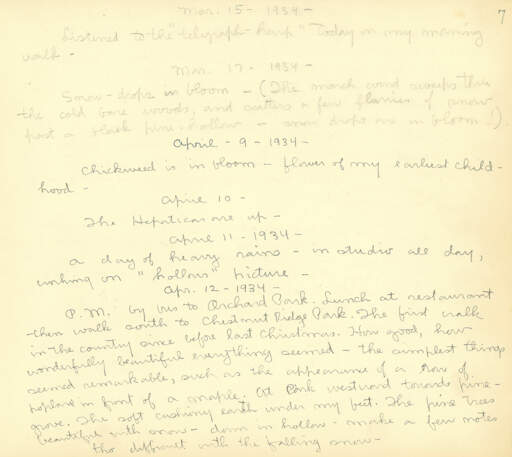 Mar. 15 - 1934 -
7
Listened to the "telegraph-harp" today on my morning
walk -
Mar. 17 - 1934 -
Snow-drops in bloom - (The march wind sweeps thru
the cold bare woods, and scatters a few flurries of snow
past a black pine-hollow - snow drops are in bloom!)
April - 9 - 1934 -
Chickweed is in bloom - flower of my earliest child-
hood -
April 10 -
The Hepaticas are up -
April 11 - 1934 -
A day of heavy rains - in studio all day,
working on "hollow" picture -
Apr. 12 - 1934 -
P.M. by bus to Orchard Park. Lunch at restaurant
then walk south to Chestnut Ridge Park. The first walk
in the country since before last Christmas. How good, how
wonderfully beautiful everything seemed - the simplest things
seemed remarkable, such as the appearance of a row of
poplars in front of a maple. At Park westward towards pine-
grove. The soft cushiony earth under my feet. The pine trees
beautiful with snow - down in hollow - make a few notes
tho difficult with the falling snow -